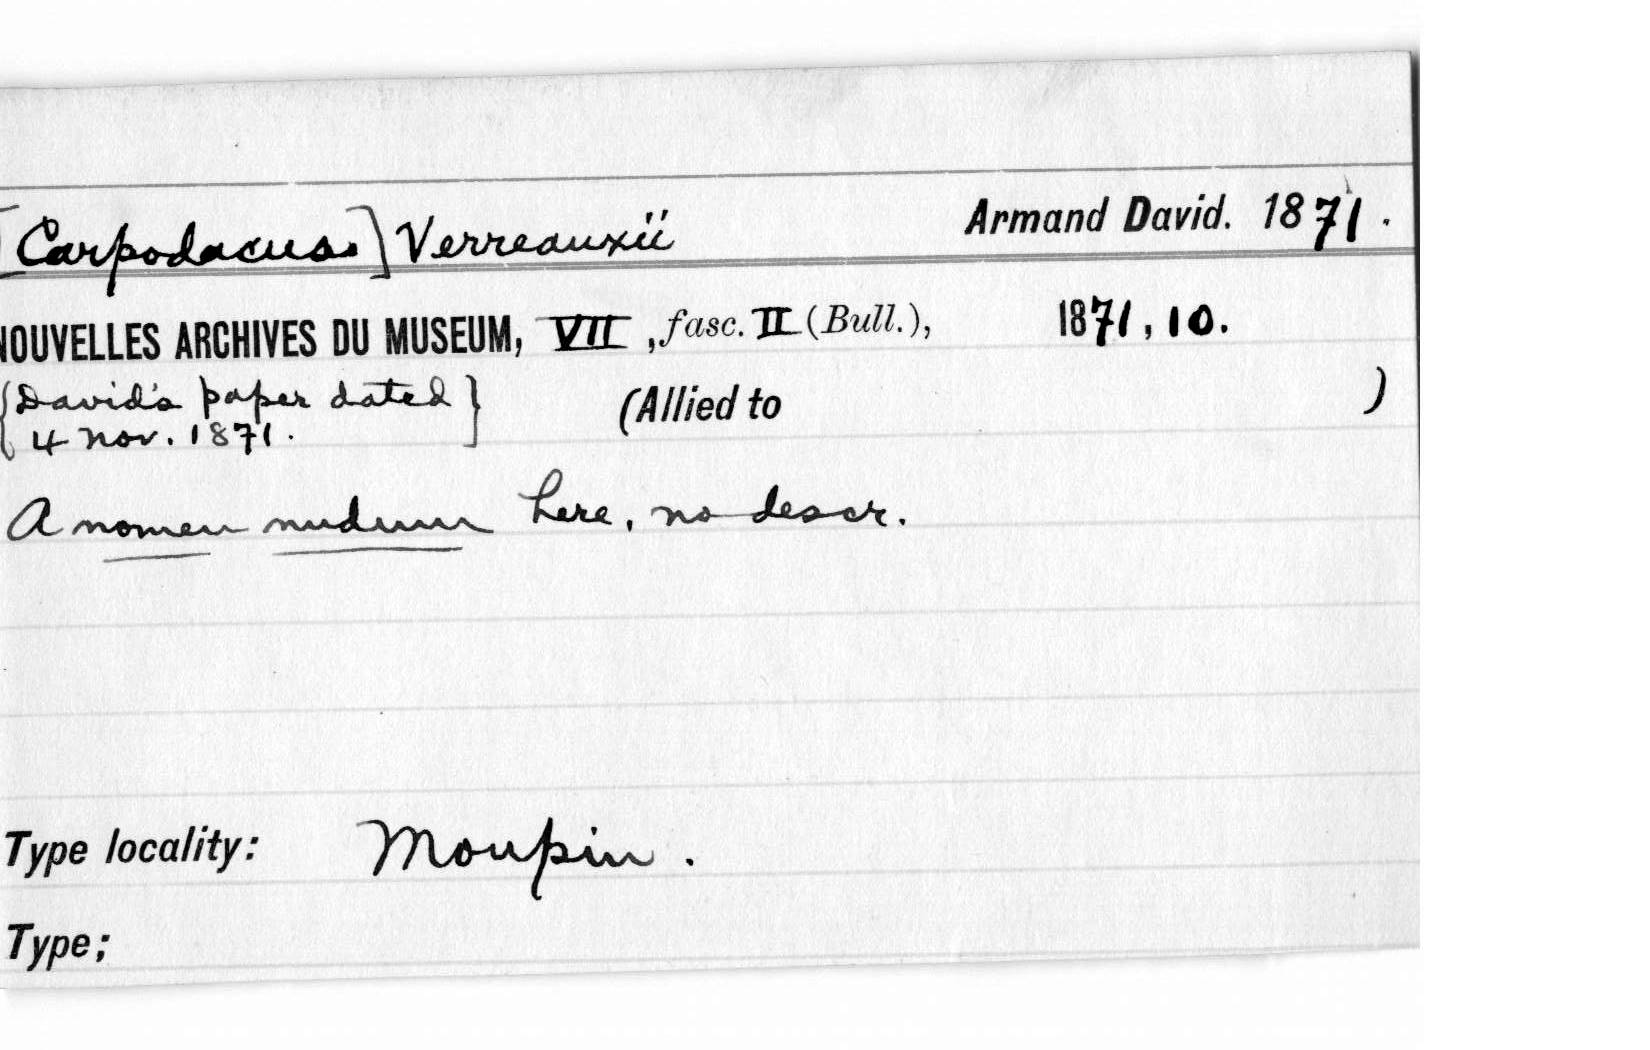 [Carpodacus] Verreauxii Armand David. 1871.
NOUVELLES ARCHIVES DU MUSEUM, VII, fasc. II (Bull.), 1871, 10.
{David's paper dated (Allied to )
4 Nov. 1871.}
A nomen nudum here, no descr.
Type locality: Moupin.
Type;